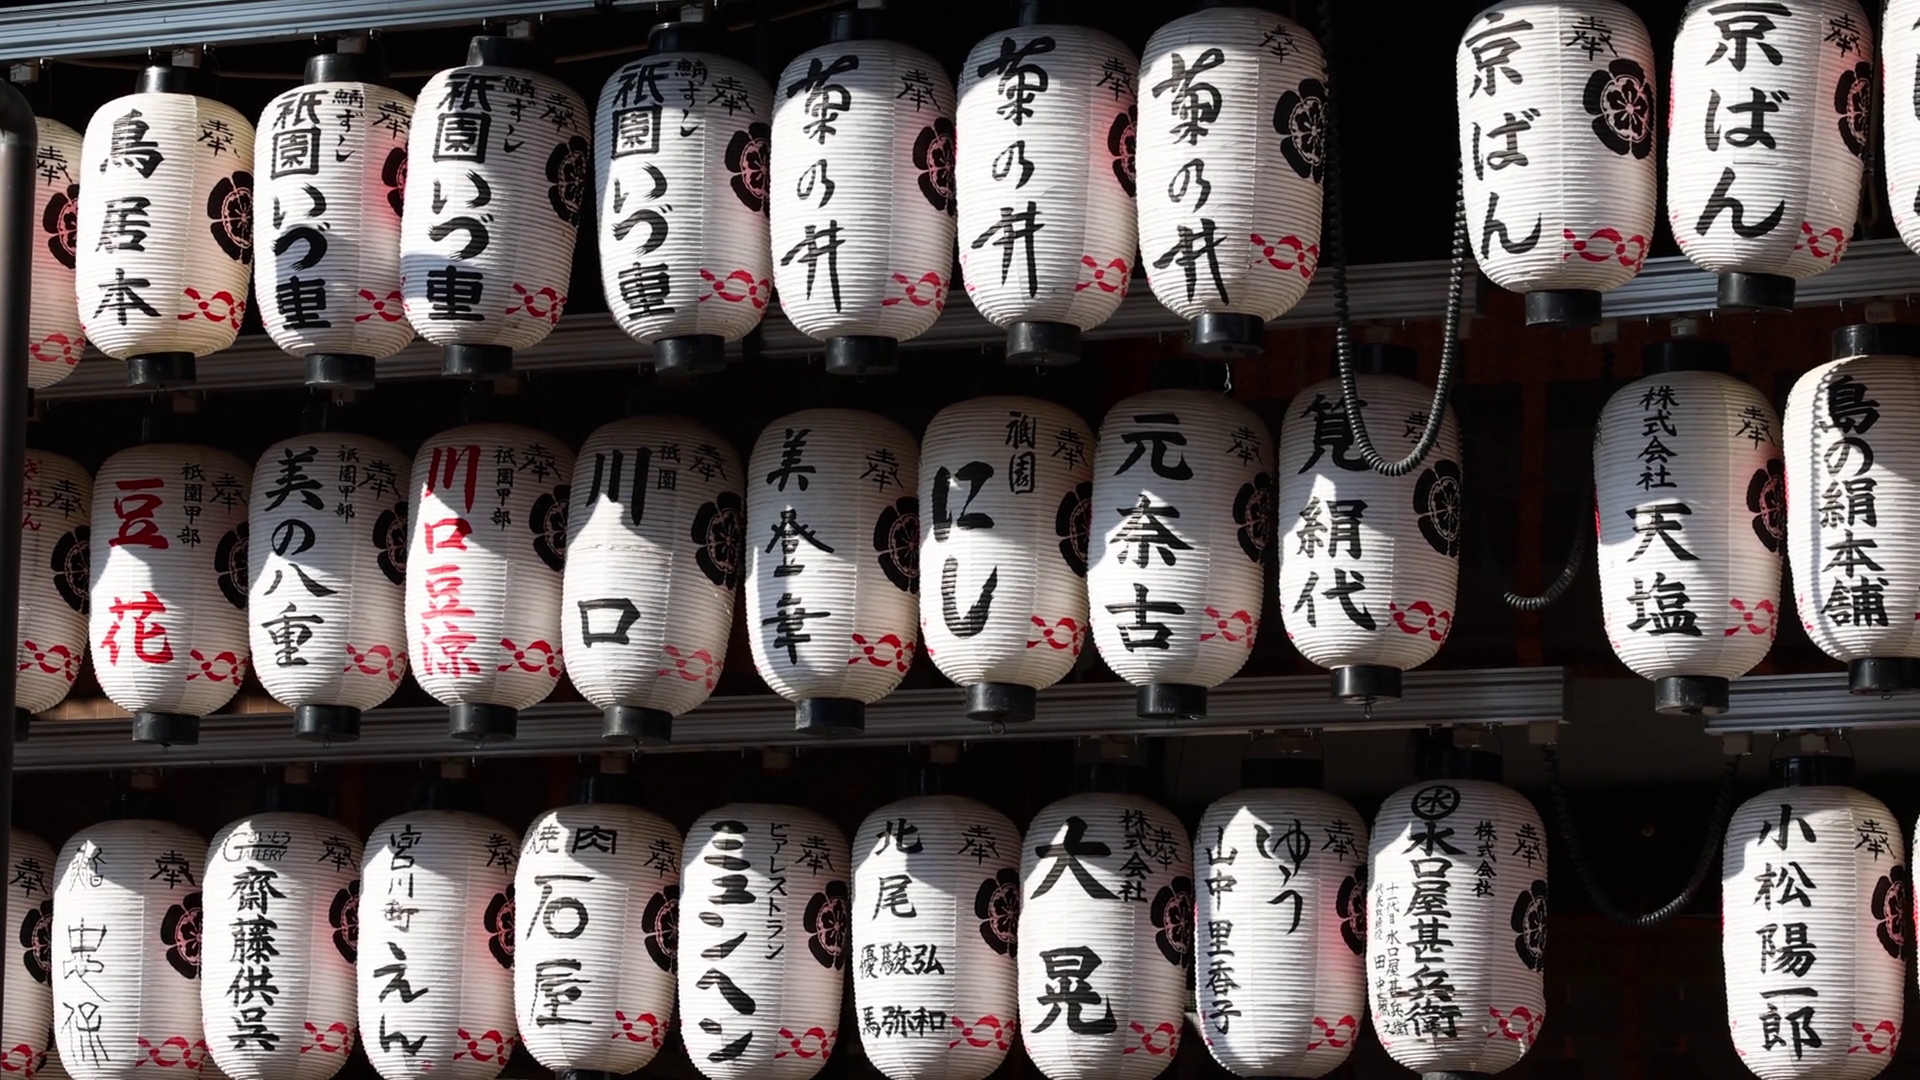 奉
鳥居本
奉
祇園いづ重
鯖ずし
奉
祇園いづ重
鯖ずし
奉
祇園いづ重
鯖ずし
奉
菊の井
奉
菊の井
奉
菊の井
奉
京ばん
奉
京ばん
奉
ぎおん
奉
豆花
祇園甲部
奉
美の八重
祇園甲部
奉
川口豆涼
祇園甲部
奉
川口
祇園
奉
美登幸
奉
祇園
にし
奉
元奈古
奉
筧絹代
奉
株式会社
天塩
奉
鳥の絹本舗
奉
忠保
奉
さいとう
GALLERY
齋藤供呉
奉
宮川町
えん
奉
焼肉
石屋
奉
ビアレストラン
ミュンヘン
奉
北尾
優駿弘
馬弥和
株式会社
大晃
奉
ゆう
山中里香子
奉
水
株式会社
水口屋甚兵衛
十一代目水口屋甚兵衛
奉
小松陽一郎
奉